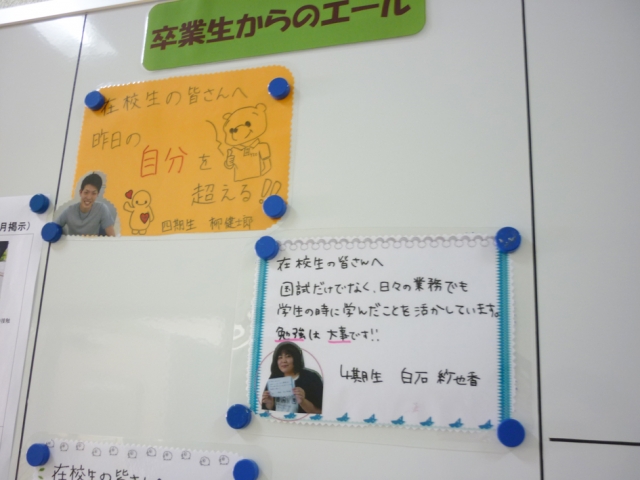 卒業生からのエール
在校生の皆さんへ
昨日の
自分を
超える!!
四期生
月掲示)
在校生の皆さんへ
国試だけでなく、日々の業務でも
学生の時に学んだことを活かしています。
勉強は大事です!!
4期生 白石 紗也香
在校生の皆さんへ